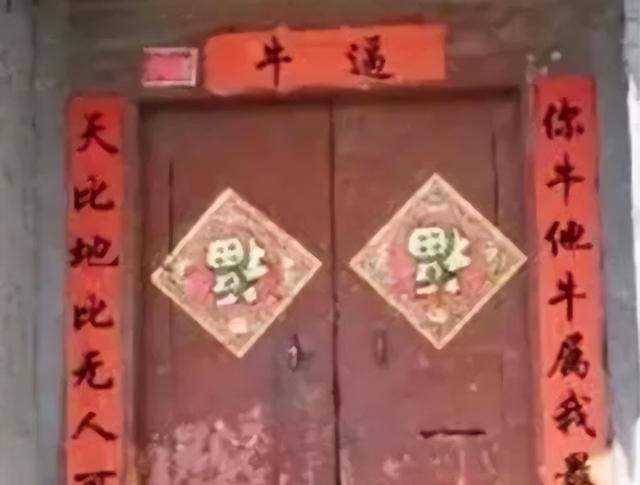 牛逼
天比地比无人可
你牛他牛属我最
福
福